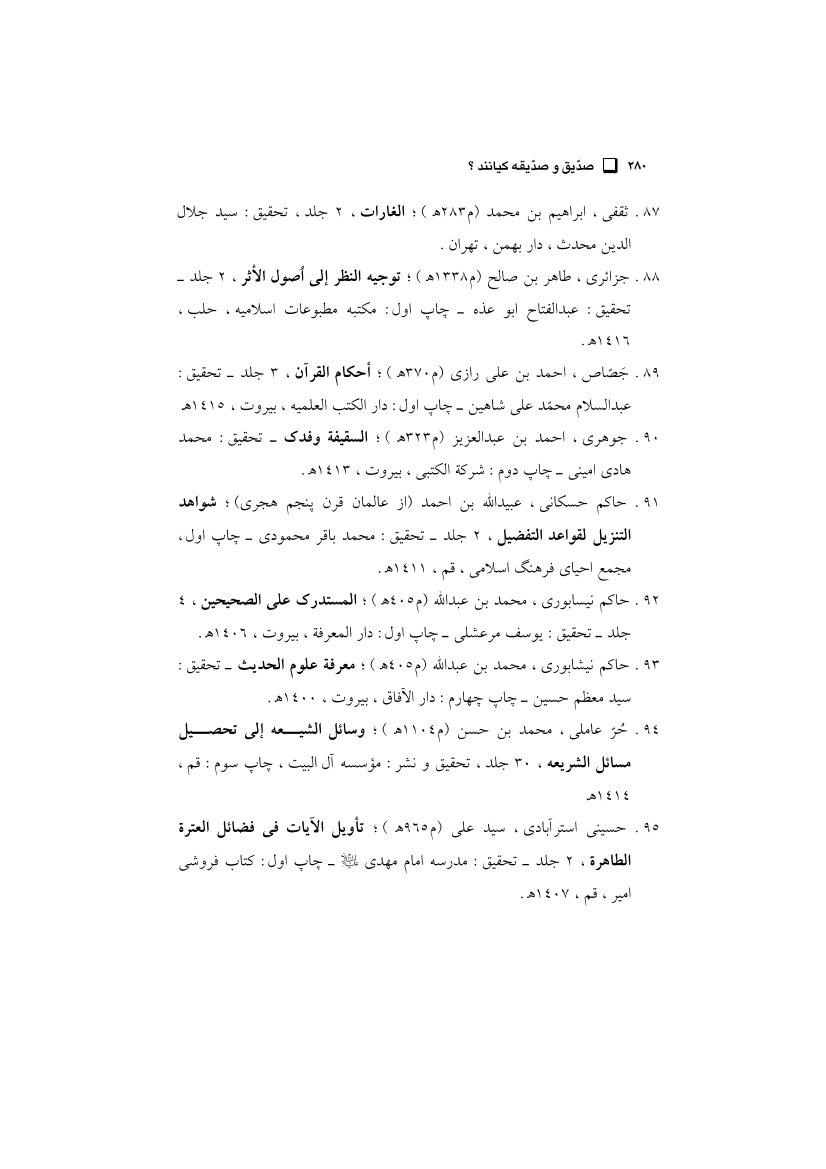 ٢٨٠ ❏ صدّیق و صدّیقه کیانند ؟
٨٧ . ثقفی ، ابراهیم بن محمد (م٢٨٣ه‍ ) ؛ الغارات ، ٢ جلد ، تحقیق : سید جلال
الدین محدث ، دار بهمن ، تهران .
٨٨ . جزائری ، طاهر بن صالح (م١٣٣٨ه‍ ) ؛ توجیه النظر إلی اُصول الأثر ، ٢ جلد ـ
تحقیق : عبدالفتاح ابو عذه ـ چاپ اول : مکتبه مطبوعات اسلامیه ، حلب ،
١٤١٦ه‍ .
٨٩ . جَصّاص ، احمد بن علی رازی (م٣٧٠ه‍ ) ؛ أحکام القرآن ، ٣ جلد ـ تحقیق :
عبدالسلام محمّد علی شاهین ـ چاپ اول : دار الکتب العلمیه ، بیروت ، ١٤١٥ه‍
٩٠ . جوهری ، احمد بن عبدالعزیز (م٣٢٣ه‍ ) ؛ السقیفة وفدک ـ تحقیق : محمد
هادی امینی ـ چاپ دوم : شرکة الکتبی ، بیروت ، ١٤١٣ه‍ .
٩١ . حاکم حسکانی ، عبیدالله بن احمد (از عالمان قرن پنجم هجری) ؛ شواهد
التنزیل لقواعد التفضیل ، ٢ جلد ـ تحقیق : محمد باقر محمودی ـ چاپ اول ،
مجمع احیای فرهنگ اسلامی ، قم ، ١٤١١ه‍ .
٩٢ . حاکم نیسابوری ، محمد بن عبدالله (م٤٠٥ه‍ ) ؛ المستدرک علی الصحیحین ، ٤
جلد ـ تحقیق : یوسف مرعشلی ـ چاپ اول : دار المعرفة ، بیروت ، ١٤٠٦ه‍ .
٩٣ . حاکم نیشابوری ، محمد بن عبدالله (م٤٠٥ه‍ ) ؛ معرفة علوم الحدیث ـ تحقیق :
سید معظم حسین ـ چاپ چهارم : دار الآفاق ، بیروت ، ١٤٠٠ه‍ .
٩٤ . حُرّ عاملی ، محمد بن حسن (م١١٠٤ه‍ ) ؛ وسائل الشیـــعه إلی تحصـــیل
مسائل الشریعه ، ٣٠ جلد ، تحقیق و نشر : مؤسسه آل البیت ، چاپ سوم : قم ،
١٤١٤ه‍
٩٥ . حسینی استرآبادی ، سید علی (م٩٦٥ه‍ ) ؛ تأویل الآیات فی فضائل العترة
الطاهرة ، ٢ جلد ـ تحقیق : مدرسه امام مهدی ـ چاپ اول : کتاب فروشی
امیر ، قم ، ١٤٠٧ه‍ .